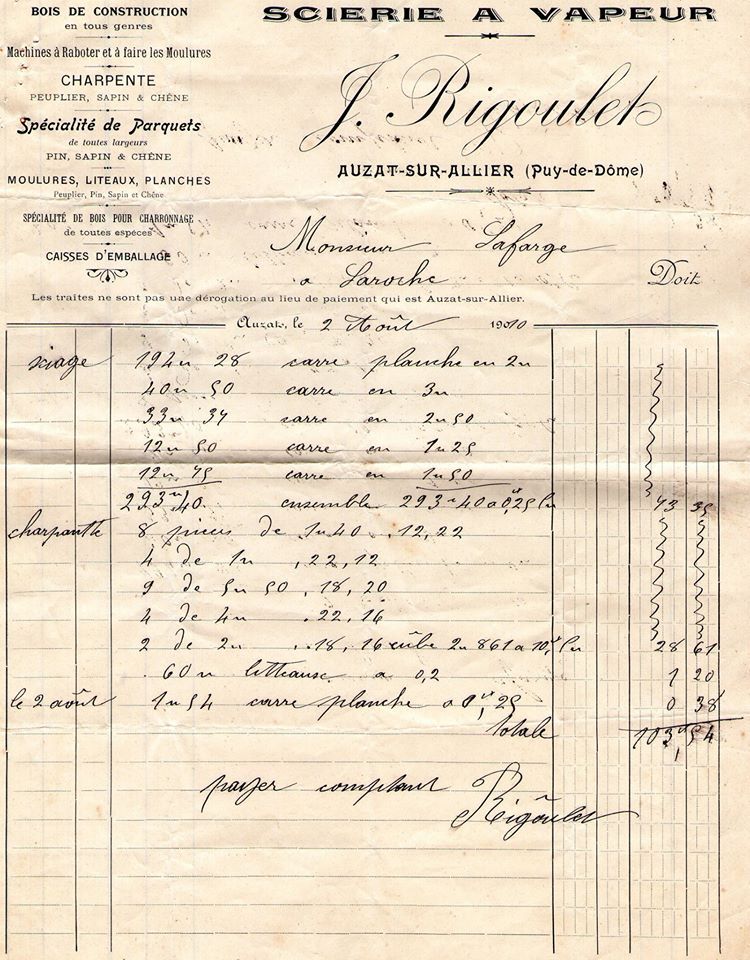 BOIS DE CONSTRUCTION
en tous genres
Machines à Raboter et à faire les Moulures
CHARPENTE
PEUPLIER, SAPIN & CHÊNE
Spécialité de Parquets
de toutes largeurs
PIN, SAPIN & CHÊNE
MOULURES, LITEAUX, PLANCHES
Peuplier, Pin, Sapin et Chêne
SPÉCIALITÉ DE BOIS POUR CHARRONNAGE
de toutes espèces
CAISSES D'EMBALLAGE
SCIERIE A VAPEUR
J. Rigoulet
AUZAT-SUR-ALLIER (Puy-de-Dôme)
Monsieur Lafarge
a Laroche Doit
Les traites ne sont pas une dérogation au lieu de paiement qui est Auzat-sur-Allier.
Auzat, le 2 Août 1910
sciage 194m 28 carre planche en 2m
40m 50 carre en 3m
33m 34 carre en 2m50
12m 50 carre en 1m25
12m 75 carre en 1m50
293m40. ensemble 293m40 a 0,25 lm 73 35
charpantte 8 pieces de 1m40 .12,22
4 de 1m ,22,12
9 de 5m 50 ,18,20
4 de 4m .22,16
2 de 2m .18,16 cube 2m861 a 10f lm 28 61
.60m litteause a 0,2 1 20
le 2 août 1m54 carre planche a 0f,25 0 38
totale 103f,54
payer comptant
Rigoulet